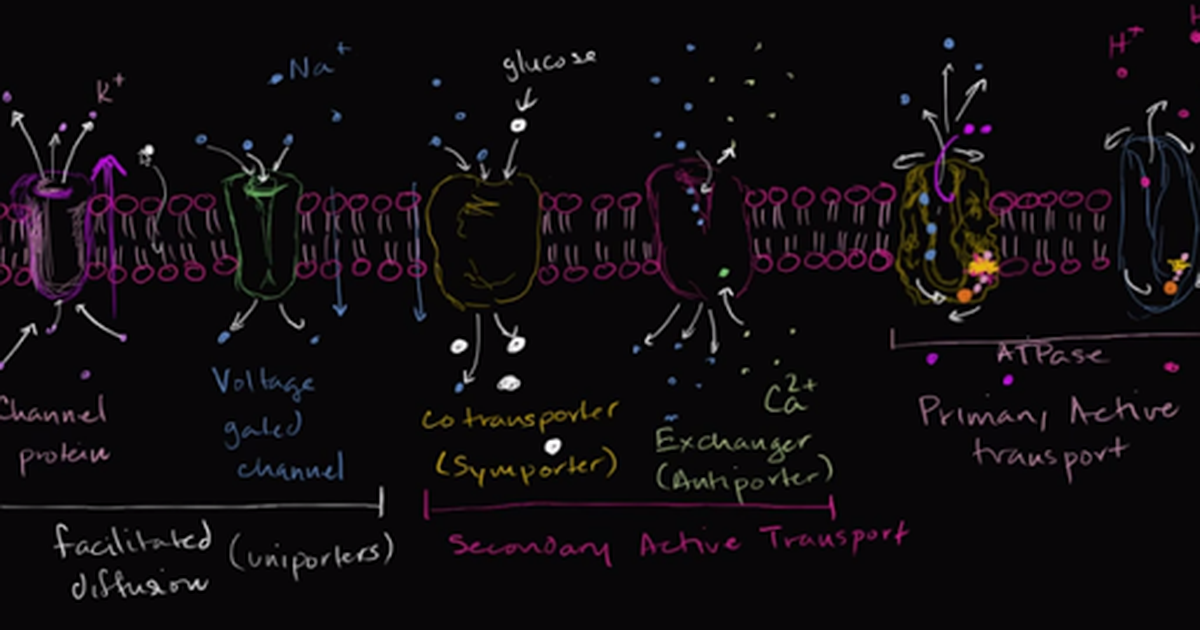 K+
Na+
glucose
H+
H
Channel
protein
Voltage
gated
channel
Cotransporter
(Symporter)
Ca2+
Exchanger
(Antiporter)
ATPase
Primary Active
transport
facilitated
diffusion
(uniporters)
Secondary Active Transport